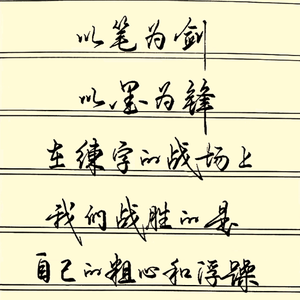 以笔为剑
以墨为锋
在练字的战场上
我们战胜的是
自己的粗心和浮躁